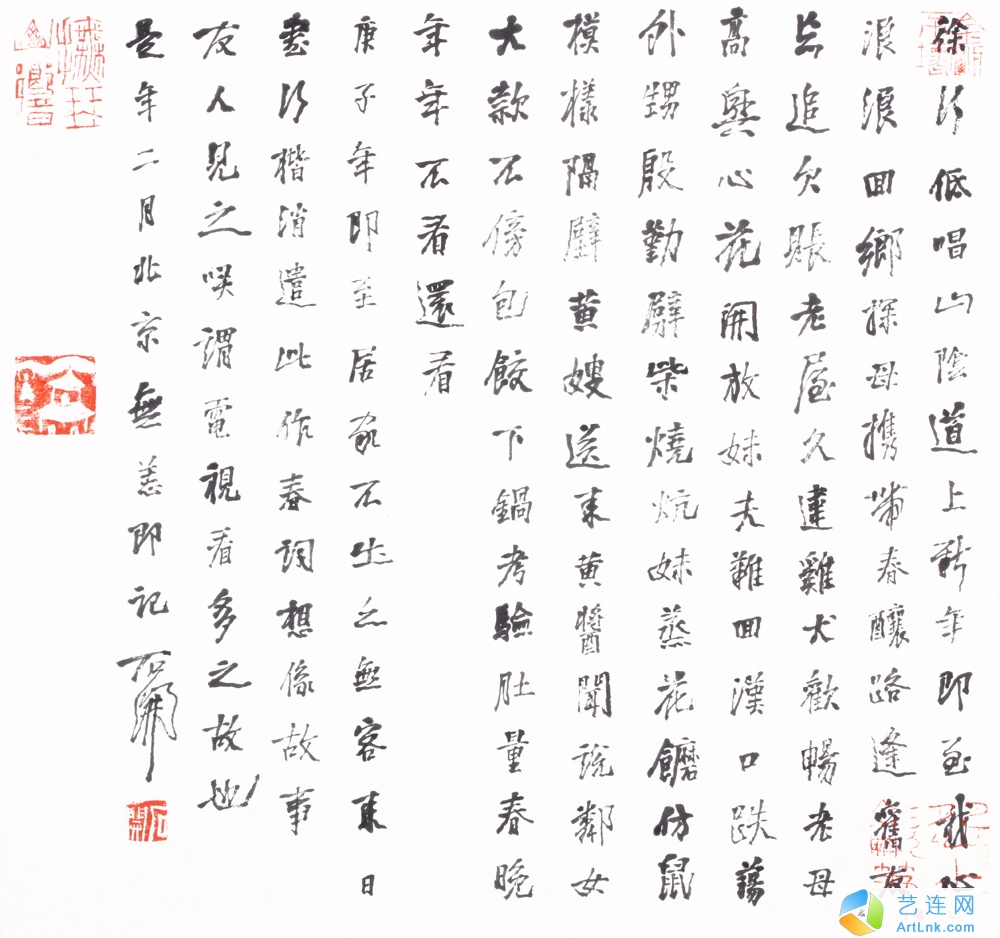 徐行低唱山陰道上新年即至我心
浪浪回鄉探母攜帶春釀路逢舊友
忘追欠賬老屋久違雞犬歡暢老母
高興心花開放妹夫難回漢口跌蕩
外甥殷勤劈柴燒炕妹蒸花饝仿鼠
模樣隔壁黄嫂送来黄醬聞説鄰女
大款不傍包餃下鍋考驗肚量春晚
年年不看還看
庚子年即至居家不出亦無客来日
書行楷消遣此作春詞想像故事
友人見之咲謂電視看多之故也
是年二月北京無恙即記 石開
艺连网
ArtLnk.com